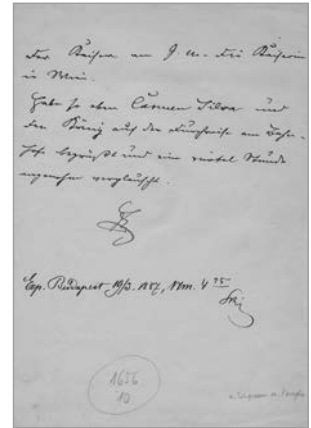 Der Kaiser an I. M. die Kaiserin
in Wien.
Habe so eben Carmen Silva und
den König auf der Durchreise am Bahn-
hofe begrüßt und eine viertel Stunde
angenehm verplauscht.
Exp. Budapest 19/3. 1887, Nm. 4 75
1656
10